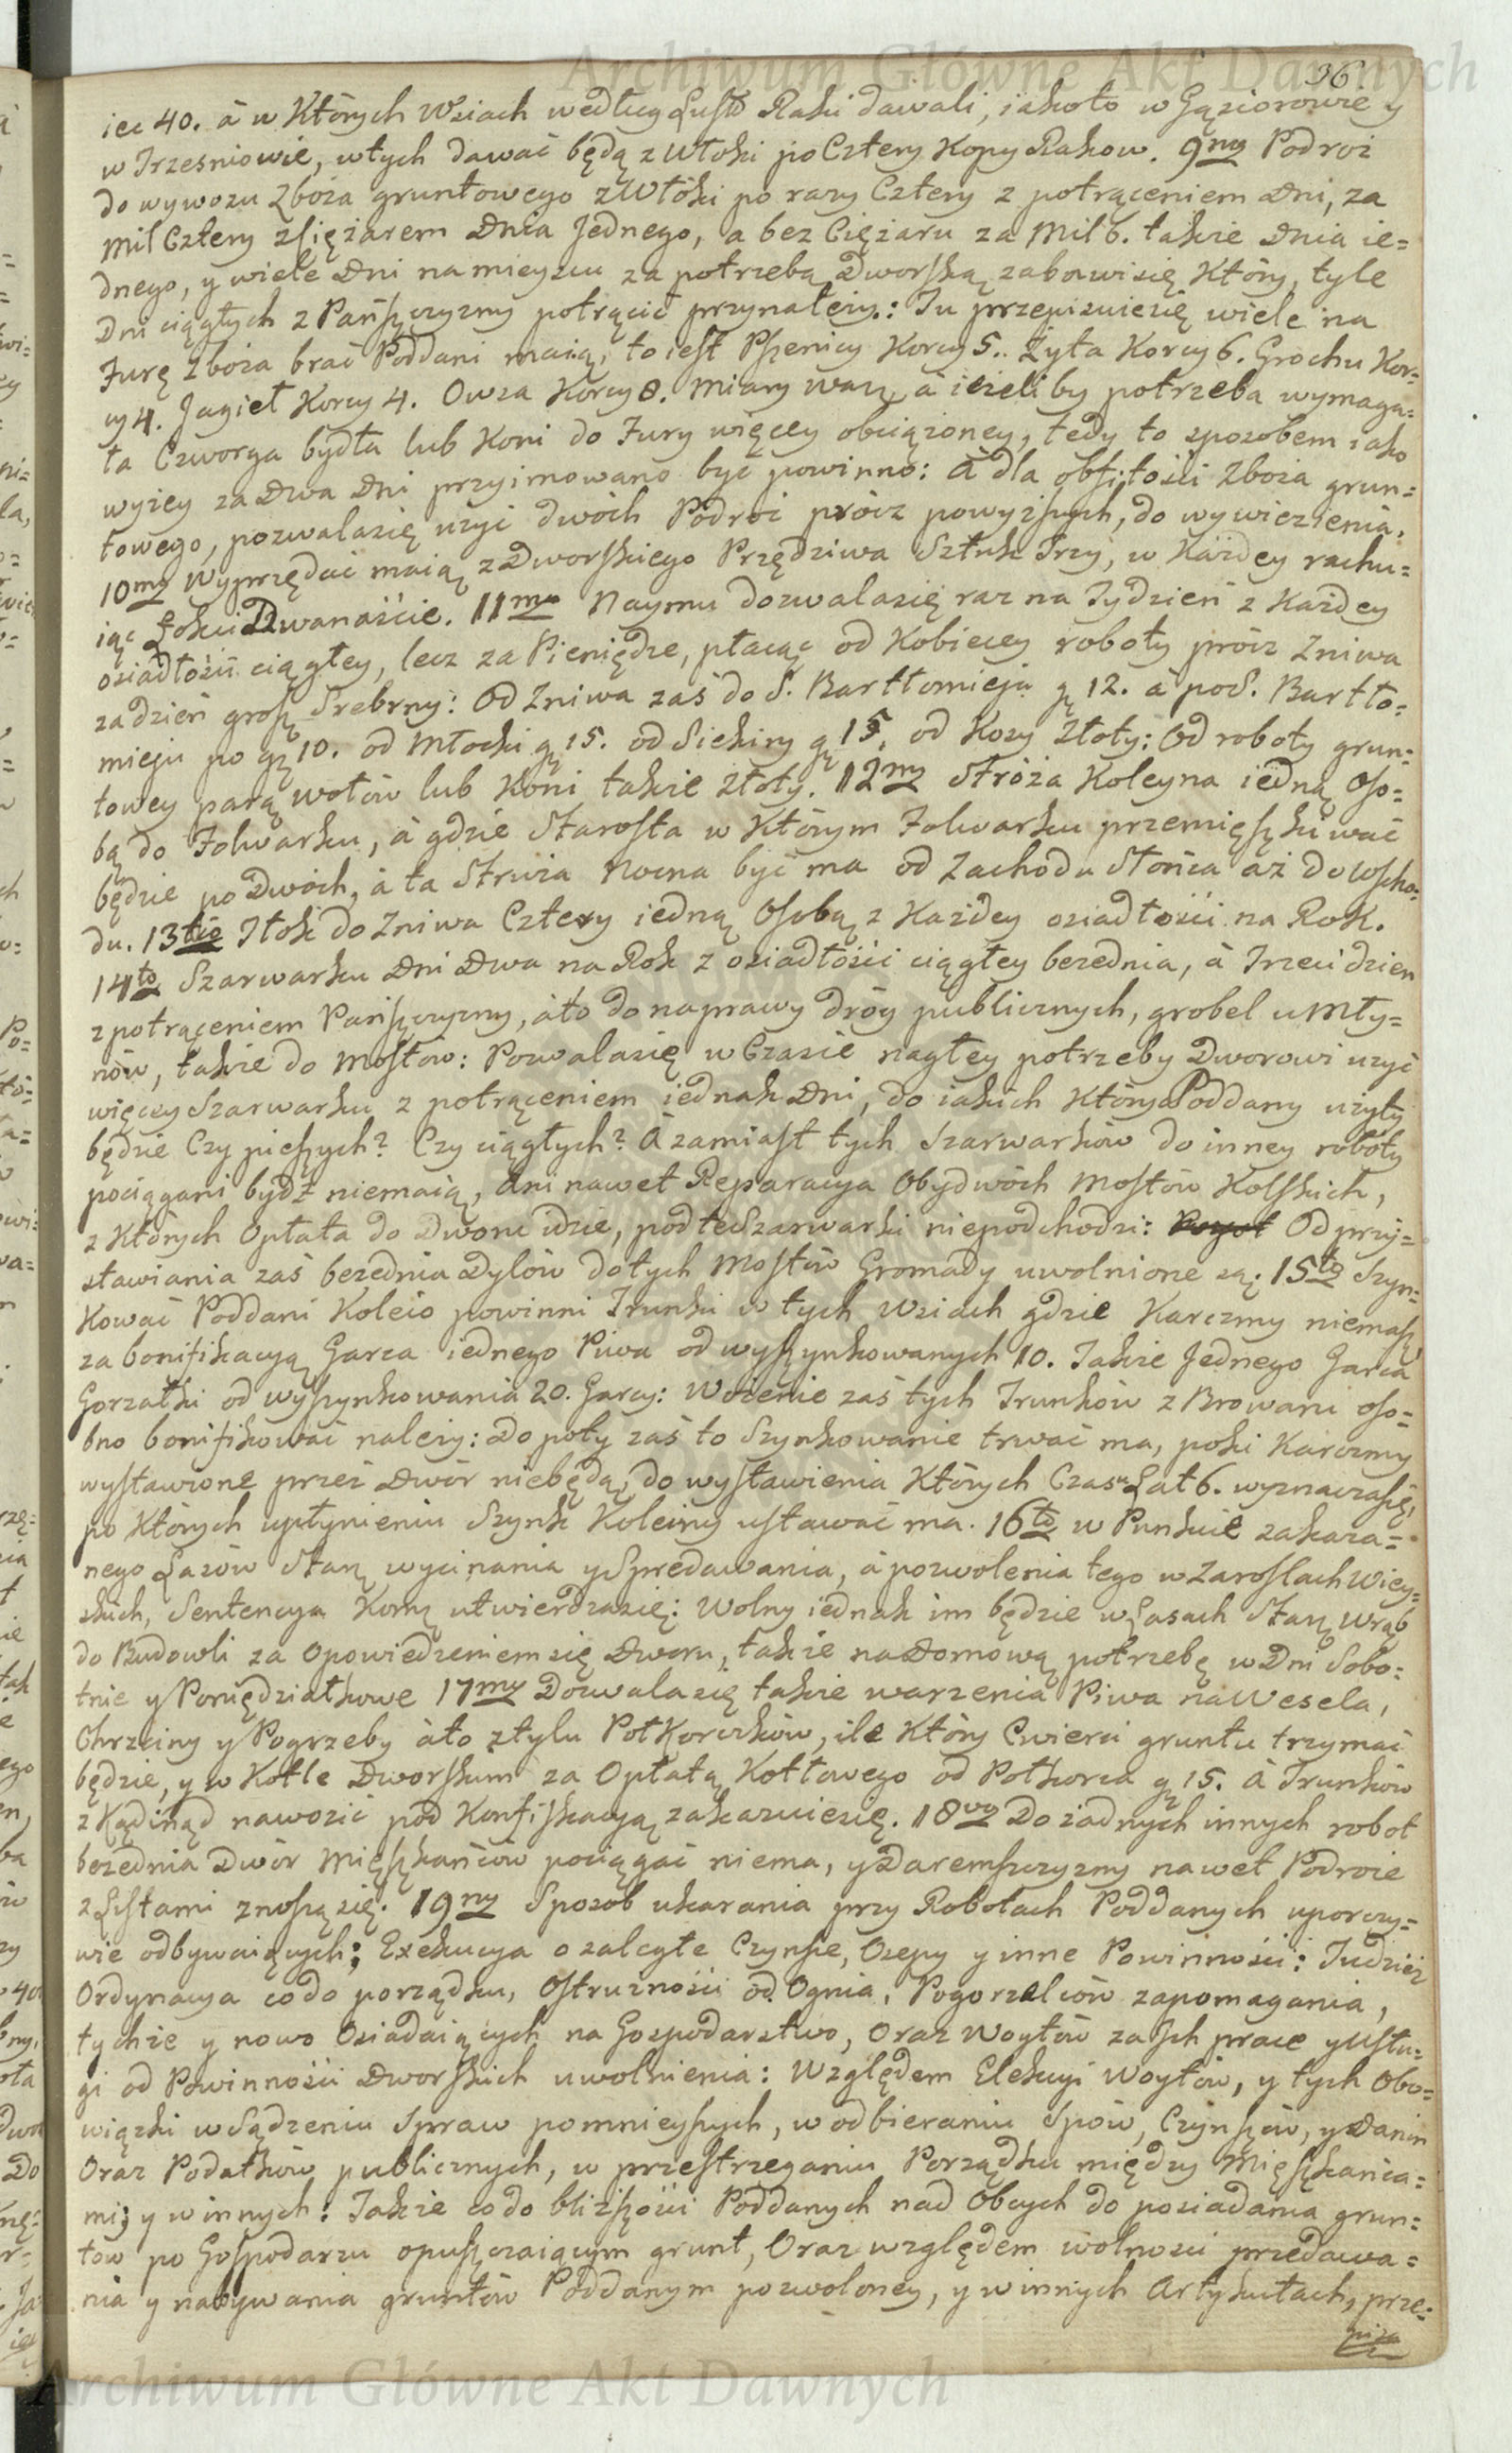 Archiwum Główne Akt Dawnych
96
iec 40. á w Których Wsiach według Lustr Raki dawali, iakoto w Gąsiorowie y
w Trzesniowie, wtych dawać będą z Włoki po Cztery Kopy Rakow. 9ny Podroż
do wywozu Zboża gruntowego z Włóki po razy Cztery z potrąceniem Dni, za
Mil Cztery z Ciężarem Dnia Jednego, a bez Ciężaru za Mil 6. także Dnia ie=
dnego, y wiele Dni na mieyscu za potrzebą Dworską zabawi się Który, tyle
Dni ciągłych z Pańszczyzny potrącić przynależy.: Tu przepisuiesię wiele na
Furę Zboża brać Poddani maią, to iest Pszenicy Korcy 5. Żyta Korcy 6. Grochu Kor=
cy 4. Jagieł Korcy 4. Owsa Korcy 8. Miary Warz, á ieżeli by potrzeba wymaga=
ła Czworga bydła lub Koni do Fury więcey obciążoney, tedy to sposobem iako
wyżey za Dwa Dni przyimowano być powinno: á dla obfitości Zboża grun=
towego, pozwalasię użyć dwóch Podroż prócz powyższych, do wywiezienia.
10my Wyprzędać maią z Dworskiego Przędziwa Sztuk Trzy, w Każdey rachu=
iąc Łokci Dwanaście. 11mo Naymu dozwalasię raz na Tydzień z Każdey
osiadłości ciągłey, lecz za Pieniędze, płacąc od Kobiecey roboty prócz Żniwa
za dzień grosz Srebrny: Od Żniwa zaś do S. Bartłomieja gę 12. á po S. Bartło=
mieju po gę 10. od Młocki gę 15. od Siekiry gę 15. od Kosy złoty: Od roboty grun=
towey parą wołów lub Koni także złoty. 12my Stróża Koleyna iedną Oso=
bą do Folwarku, á gdzie Starosta w Którym Folwarku przemięszkiwać
będzie po Dwóch, á ta Struża Nocna być ma od Zachodu Słońca aż do Wscho=
du. 13tio Tłok do Żniwa Cztery iedną Osobą z Każdey osiadłości na Rok.
14to Szarwarku Dni Dwa na Rok z osiadłości ciągłey bezednia, á Trzeci dzien
z potrąceniem Pańszczyzny, áto do naprawy dróg publicznych, grobel u Mły=
nów, także do Mostów: Pozwalasię w Czasie nagłey potrzeby Dworowi użyć
więcey Szarwarku z potrąceniem iednak Dni, do iakich Który Poddany użyty
będzie Czy pieszych? Czy ciągłych? á zamiast tych Szarwarków do inney roboty
pociągani bydź niemaią, Ani nawet Reparacya Obydwóch Mostów Kolskich,
z Których Opłata do Dworu idzie, pod te Szarwarki niepodchodzi: Od przy=
stawiania zaś bezednia Dylów do tych Mostów Gromady uwolnione są: 15to Szyn=
kować Poddani Koleio powinni Trunki w tych Wsiach gdzie Karczmy niemasz
za bonifikacyą Garca iednego Piwa od wyszynkowanych 10. Także Jednego Garca
Gorzałki od wyszynkowania 20. Garcy: Wożenie zaś tych Trunków z Browaru oso=
bno bonifikować należy: Do poty zaś to Szynkowanie trwać ma, poki Karczmy
wystawione przez Dwór niebędą, do wystawienia Których Czasu Lat 6. wyznaczasię,
po Których upłynieniu Szynk Koleiny ustawać ma. 16to w Punkcie zakaza=
nego Lasów Starz wycinania y Sprzedawania, á pozwolenia tego w Zaroslach Wiey=
skich, Sentencya Komz utwierdzasię: Wolny iednak im będzie w Lasach Starz Wrąb
do Budowli za Opowiedzeniem się Dworu, także na Domową potrzebę w Dni Sobo=
tnie y Poniędziałkowe 17my Dozwalasię także warzenia Piwa na Wesela,
Chrzciny y Pogrzeby áto z tylu Połkorczków, ile Który Cwierci gruntu trzymać
będzie, y w Kotle Dworskim za Opłatą Kotłowego od Połkorca gę 15. á Trunków
z Kądinąd nawozić pod Konfiskacyą zakazuiesię. 18vo Do żadnych innych robot
bezednia Dwór Mięszkańców pociągać niema, y Daremszczyzny nawet Podroże
z Listami znoszą się. 19ny Sposob ukarania przy Robotach Poddanych uporczy=
wie odbywaiących; Exekucya o zaległe Czynsze, Osepy y inne Powinności: Tudzież
Ordynacya co do porządku, Ostrużności od Ognia, Pogorzelców zapomagania,
tychże y nowo Osiadaiących na Gospodarstwo, Oraz Woytów za Ich prace y Usłu=
gi od Powinności Dworskich uwolnienia: Względem Elekcyi Woytów, y tych Obo=
wiązki w Sądzeniu Spraw pomnieyszych, w odbieraniu Spów, Czynszów, y Danin
Oraz Podatków publicznych, w przestrzeganiu Porządku między Mięszkańca=
mi; y w innych: Także co do bliższości Poddanych nad Obcych do posiadania grun=
tow po Gospodarzu opuszczaiącym grunt, Oraz względem wolności przedawa=
nia y nabywania gruntów Poddanym pozwoloney, y w innych Artykułach, prze=
pisa
Archiwum Główne Akt Dawnych